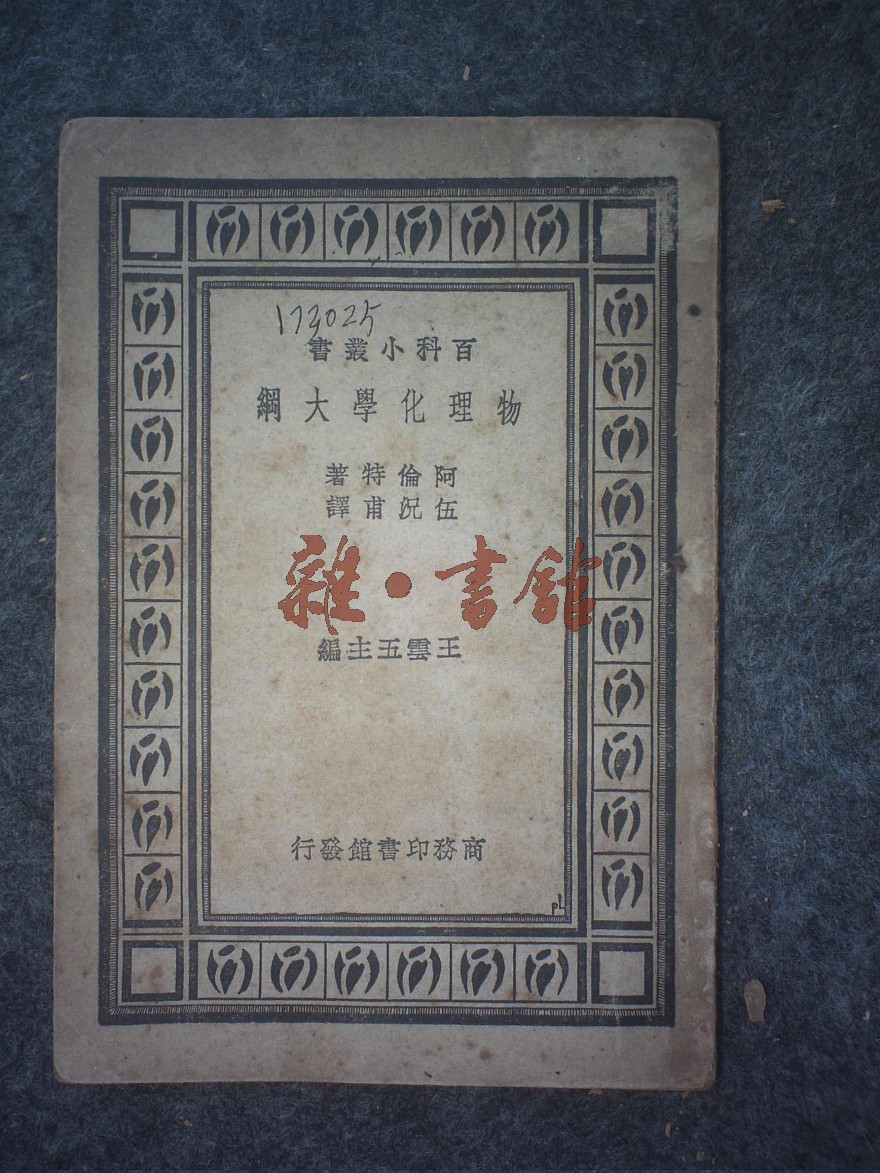 173025
百科小叢書
物理化學大綱
阿倫特著
伍況甫譯
雜·書館
王雲五主編
商務印書館發行